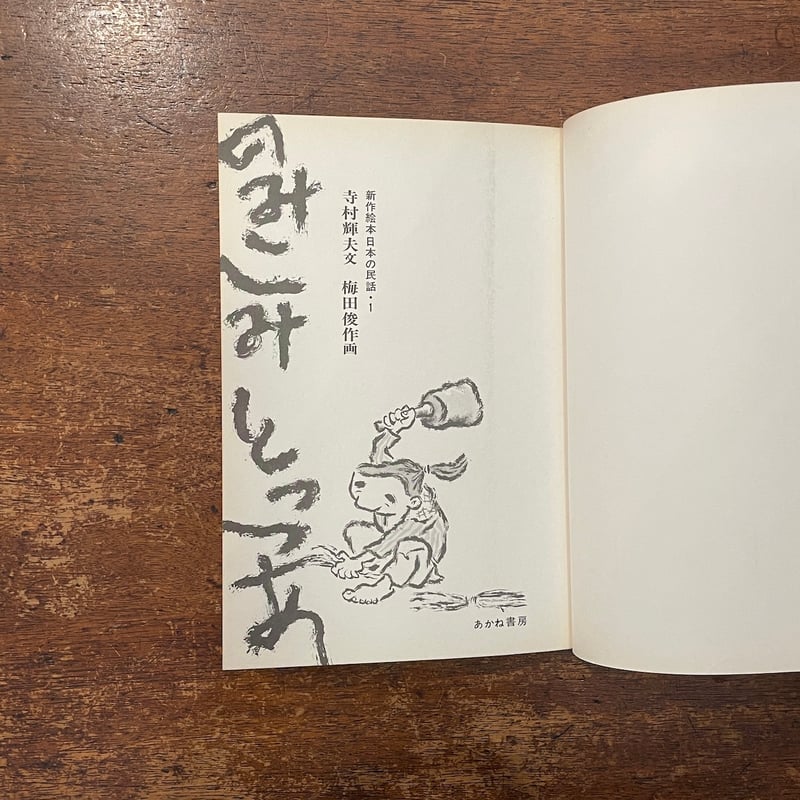 新作絵本日本の民話・1
寺村輝夫文　梅田俊作画
のみこみとっつあ
あかね書房